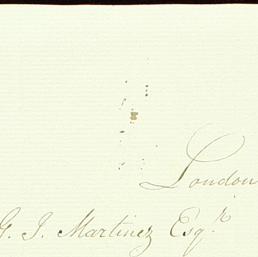 London
G. J. Martinez Esqr.